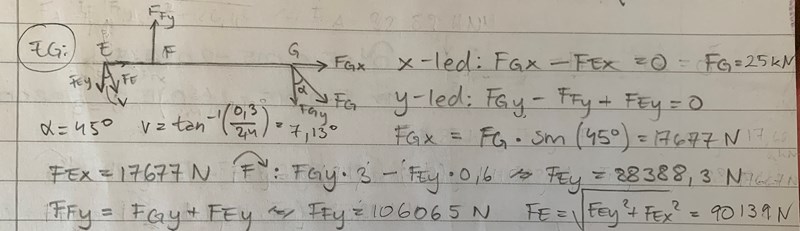 EG:
FFy
E F G FGx
FEy FE α FGy FG
V
x-led: FGx - FEx = 0 FG = 25 kN
y-led: FGy - FFy + FEy = 0
α = 45° v = tan⁻¹(0,3/2,4) = 7,13° FGx = FG · sin(45°) = 17677 N
FEx = 17677 N F: FGy · 3 - FEy · 0,6 ⇒ FEy = 88388,3 N
FFy = FGy + FEy ⇒ FFy = 106065 N FE = √FEy² + FEx² = 90139 N